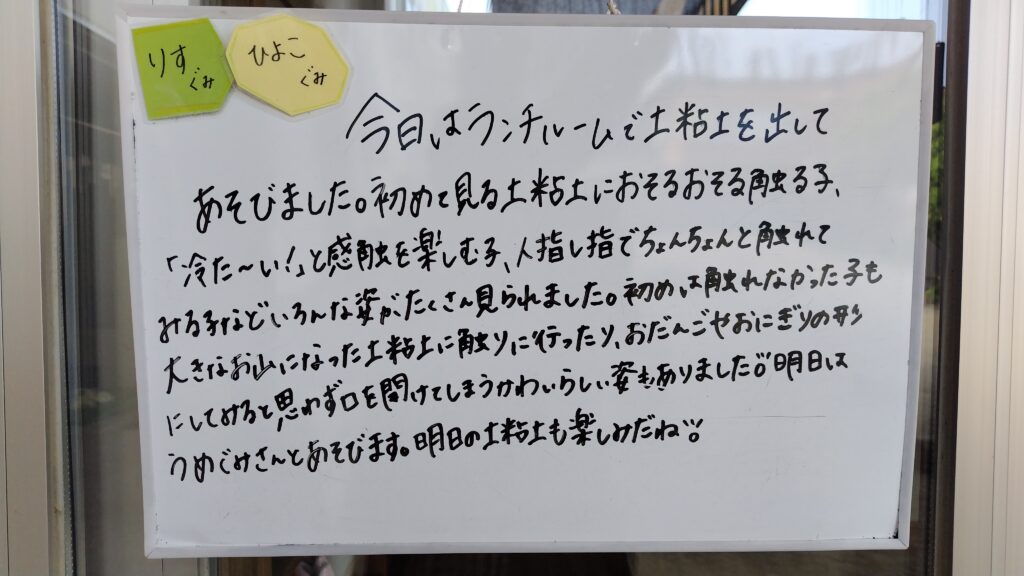 りす
ぐみ
ひよこ
ぐみ
今日はランチルームで土粘土を出して
あそびました。初めて見る土粘土におそるおそる触る子、
「冷た〜い!」と感触を楽しむ子、人指し指でちょんちょんと触れて
みる子などいろんな姿がたくさん見られました。初めは触れなかった子も
大きなお山になった土粘土に触りに行ったり、おだんごやおにぎりの形
にしてみると思わず口を開けてしまうかわいらしい姿もありました。明日は
うめぐみさんとあそびます。明日の土粘土も楽しみだね。